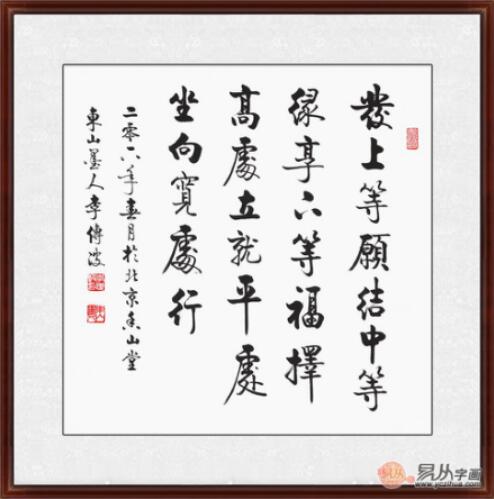 發上等願結中等
緣享下等福擇
高處立就平處
坐向寬處行
二零一八年春月於北京香山堂
東山墨人李傳波
易从字画
www.yczihua.com